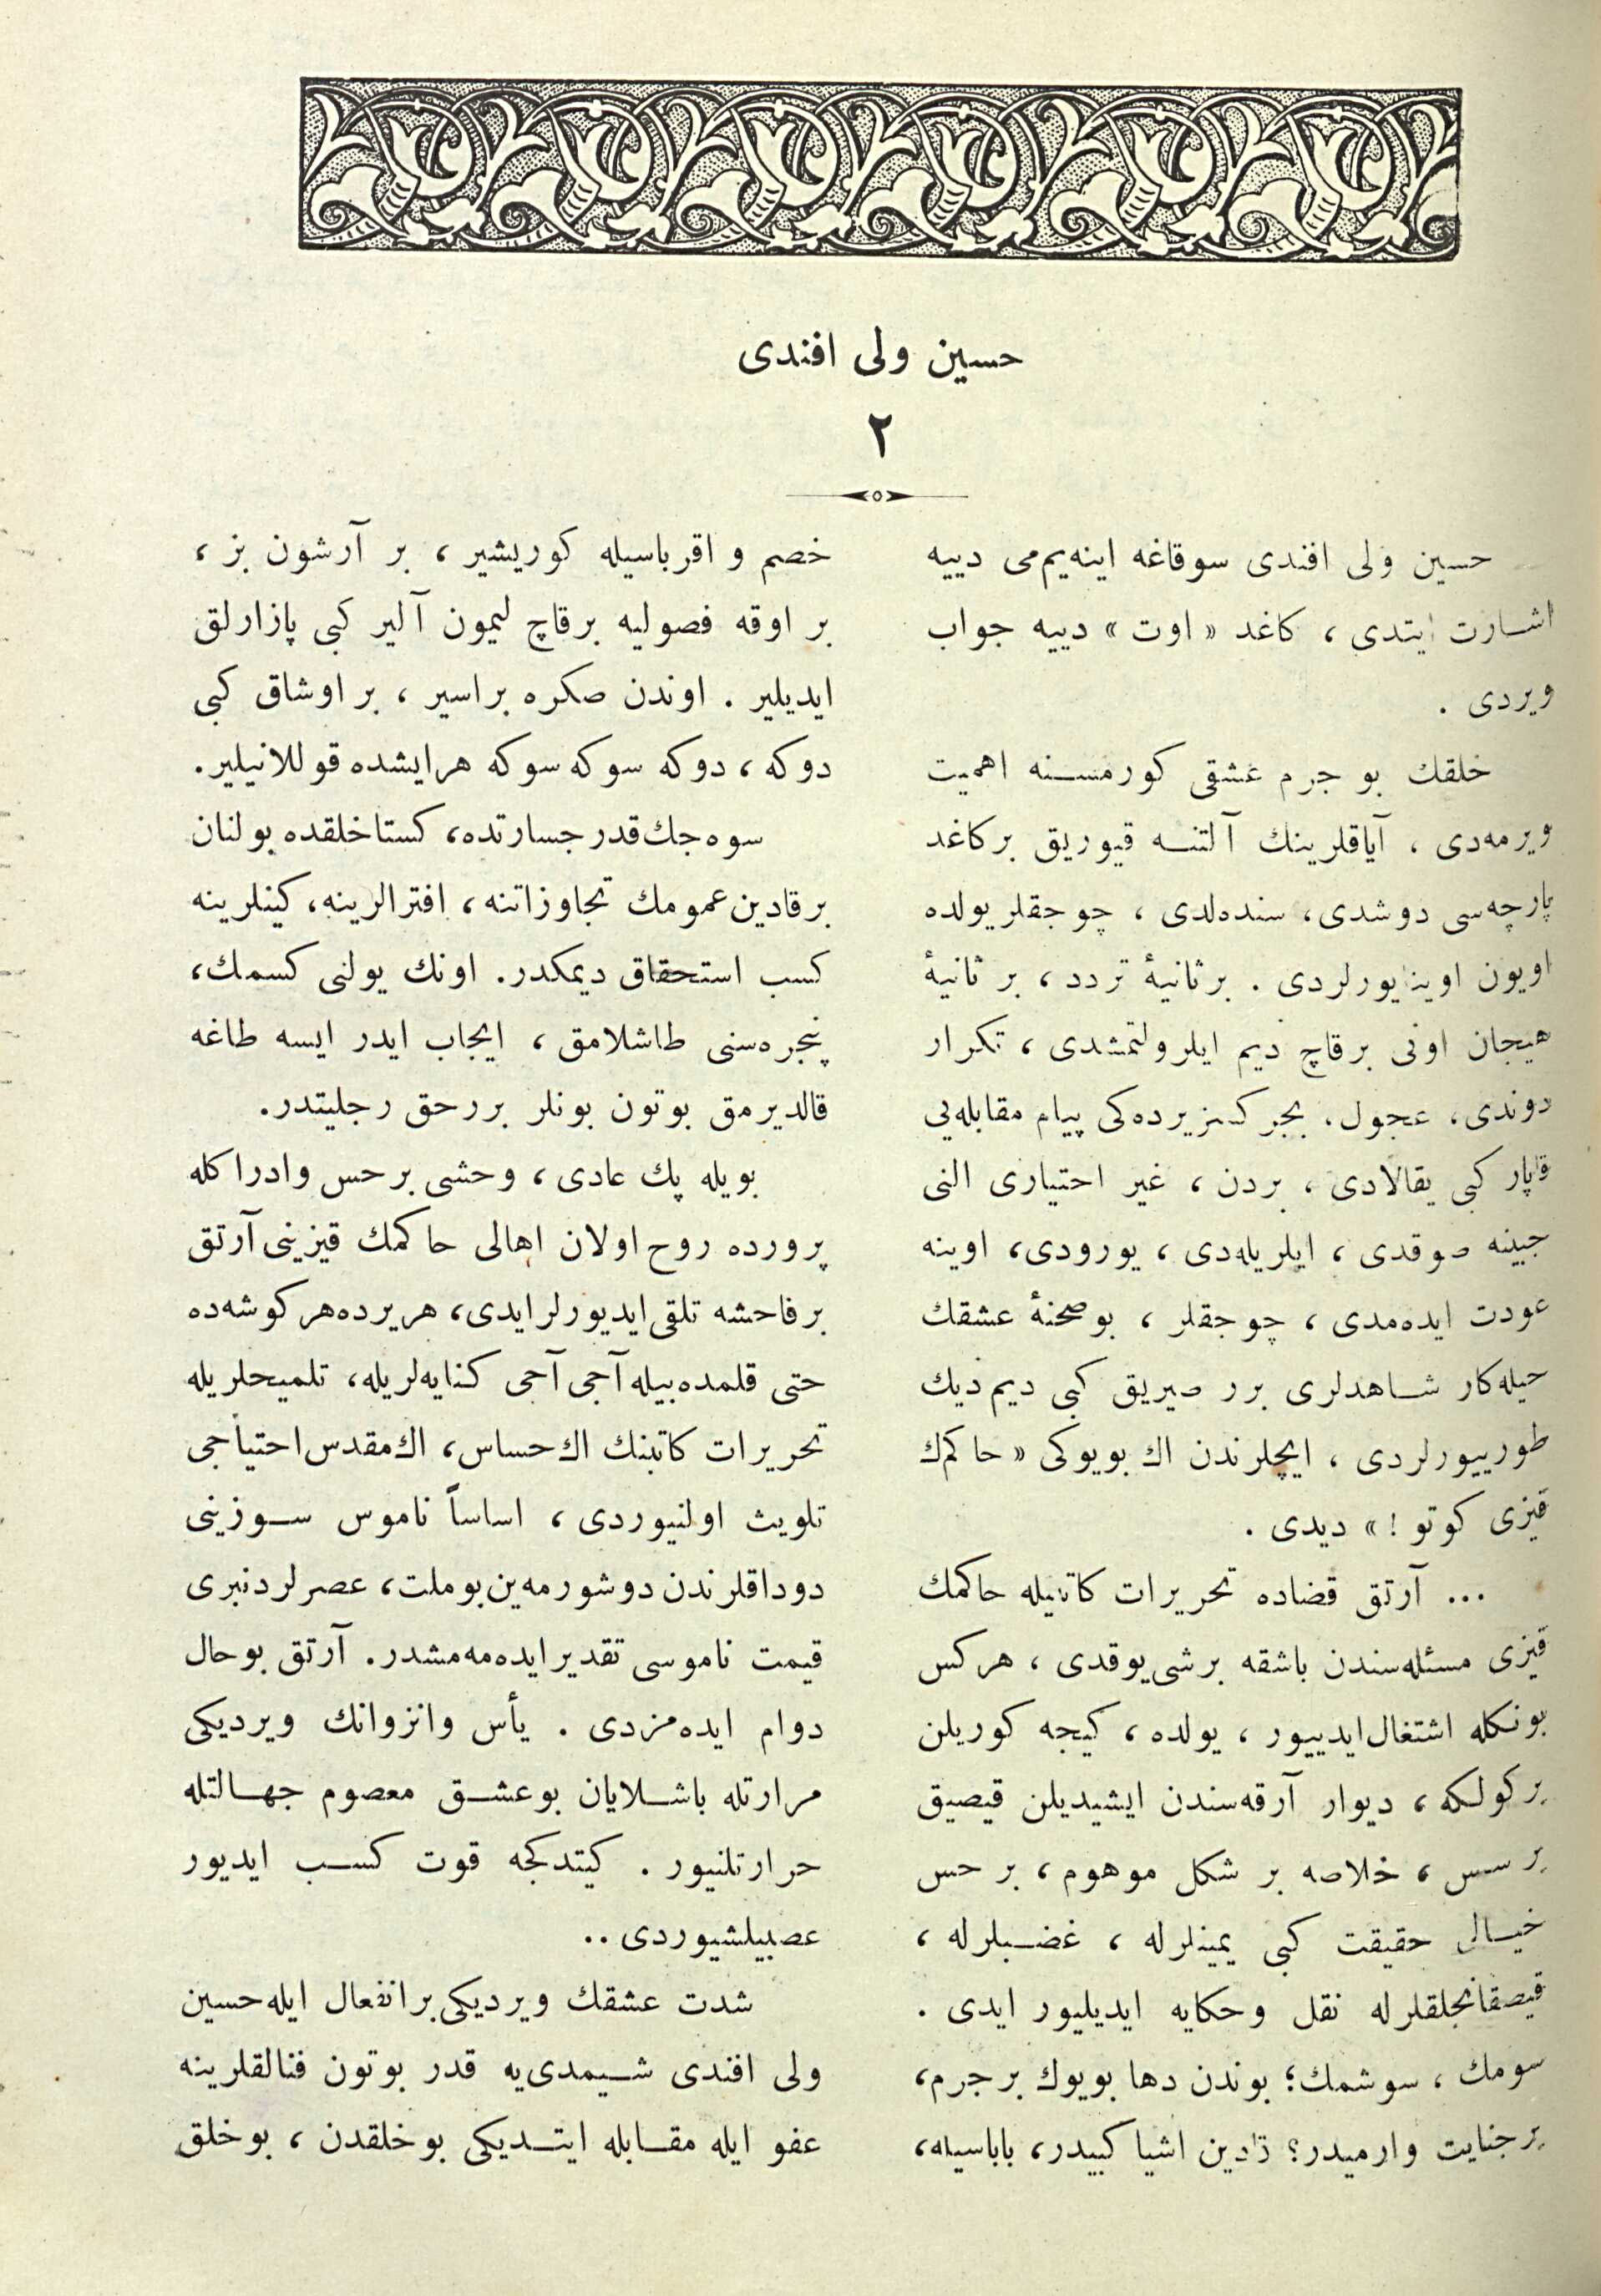 حسین ولی افندی
٢
حسین ولی افندی سوقاغه اینه‌یم‌می دییه
اشارت ایتدی ، کاغد « اوت » دییه جواب
ویردی .
خلقك بو جرم عشقی کورمسنه اهمیت
ویرمه‌دی ، آیاقلرینك آلتنه قیوریق برکاغد
پارچه‌سی دوشدی، سنده‌لدی ، چوجقلر یولده
اویون اوینایورلردی . برثانیۀ تردد ، بر ثانیۀ
هیجان اونی برقاچ دیم ایلرولتمشدی ، تکرار
دوندی، عجول، بجرکسزیرده‌کی پیام مقابله‌یی
قاپار کبی یقالادی ، بردن ، غیر احتیاری النی
جیبنه صوقدی ، ایلریله‌دی ، یورودی، اوینه
عودت ایده‌مدی ، چوجقلر ، بوصحنۀ عشقك
حیله‌کار شاهدلری برر صیریق کبی دیم دیك
طورییورلردی ، ایچلرندن اك بویوکی « حاکمك
قیزی کوتو ! » دیدی .
... آرتق قضاده تحریرات کاتبیله حاکمك
قیزی مسئله‌سندن باشقه برشی‌یوقدی ، هرکس
بونکله اشتغال‌ایدییور ، یولده ، کیجه کوریلن
برکولکه ، دیوار آرقه‌سندن ایشیدیلن قیصیق
بر سس ، خلاصه بر شکل موهوم ، بر حس
خیالی حقیقت کبی یمینلرله ، غضبلرله ،
قیصقانجلقلرله نقل وحکایه ایدیلیور ایدی .
سومك ، سوشمك؛ بوندن دها بویوك برجرم،
برجنایت وارمیدر؟ قادین اشیا کبیدر، باباسیله،
خصم و اقرباسیله کوریشیر ، بر آرشون بز ،
بر اوقه فصولیه برقاچ لیمون آلیر کبی پازارلق
ایدیلیر . اوندن صکره براسیر ، براوشاق کبی
دوکه ، دوکه سوکه سوکه هرایشده قوللانیلیر.
سوه‌جك‌قدرجسارتده، کستاخلقده بولنان
برقادین‌عمومك تجاوزاتنه ، افترالرینه، کینلرینه
کسب استحقاق دیمکدر. اونك یولنی کسمك،
پنجره‌سنی طاشلامق ، ایجاب ایدر ایسه طاغه
قالدیرمق بوتون بونلر بررحق رجلیتدر.
بویله پك عادی ، وحشی برحس وادراکله
پرورده روح‌اولان اهالی حاکمك قیزینی‌آرتق
برفاحشه تلقی‌ایدیورلرایدی، هریرده‌هرکوشه‌ده
حتی قلمده‌بیله آجی‌آجی کنایه‌لریله، تلمیحلریله
تحریرات کاتبنك اك‌حساس، اك‌مقدس‌احتیاجی
تلویث اولنیوردی ، اساساً ناموس سوزینی
دوداقلرندن دوشورمه‌ین‌بوملت، عصرلردنبری
قیمت ناموسی تقدیرایده‌مه‌مشدر. آرتق بوحال
دوام ایده‌مزدی . یأس وانزوانك ویردیکی
مرارتله باشلایان بوعشق معصوم جهالتله
حرارتلنیور . کیتدکجه قوت کسب ایدیور
عصبیلشیوردی ..
شدت عشقك ویردیکی‌برانفعال ایله‌حسین
ولی افندی شیمدی‌یه قدر بوتون فنالقلرینه
عفو ایله مقابله ایتدیکی بوخلقدن ، بوخلق